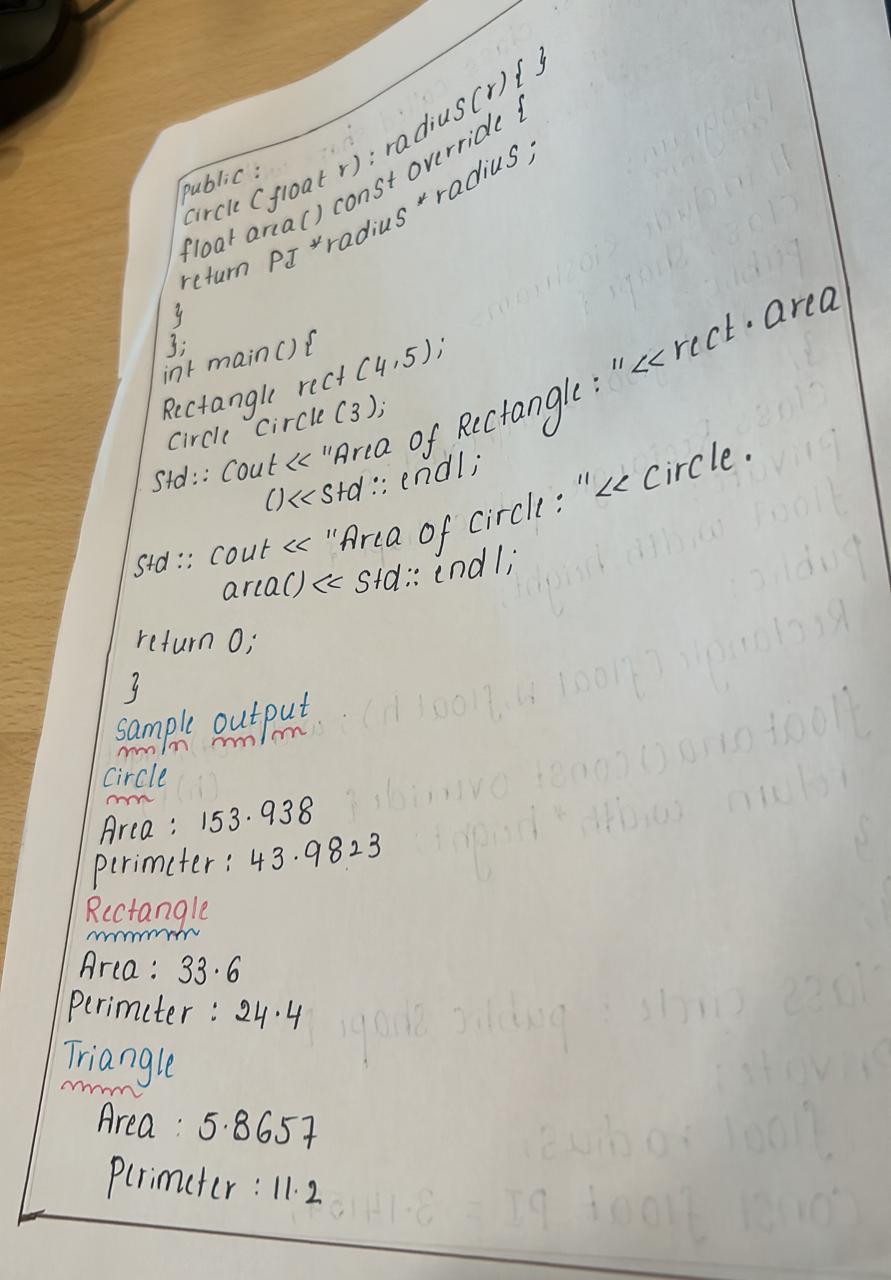 public :
Circle (float r) : radius(r) { }
float area() const override {
return PI * radius * radius ;
}
};
int main() {
Rectangle rect (4,5);
Circle Circle (3);
Std:: Cout << "Area of Rectangle : " << rect . area
() << Std :: endl;
Std :: Cout << "Area of Circle : " << Circle .
area() << Std :: endl;
return 0;
}
Sample output
Circle
Area : 153.938
Perimeter : 43.9823
Rectangle
Area : 33.6
Perimeter : 24.4
Triangle
Area : 5.8657
Perimeter : 11.2